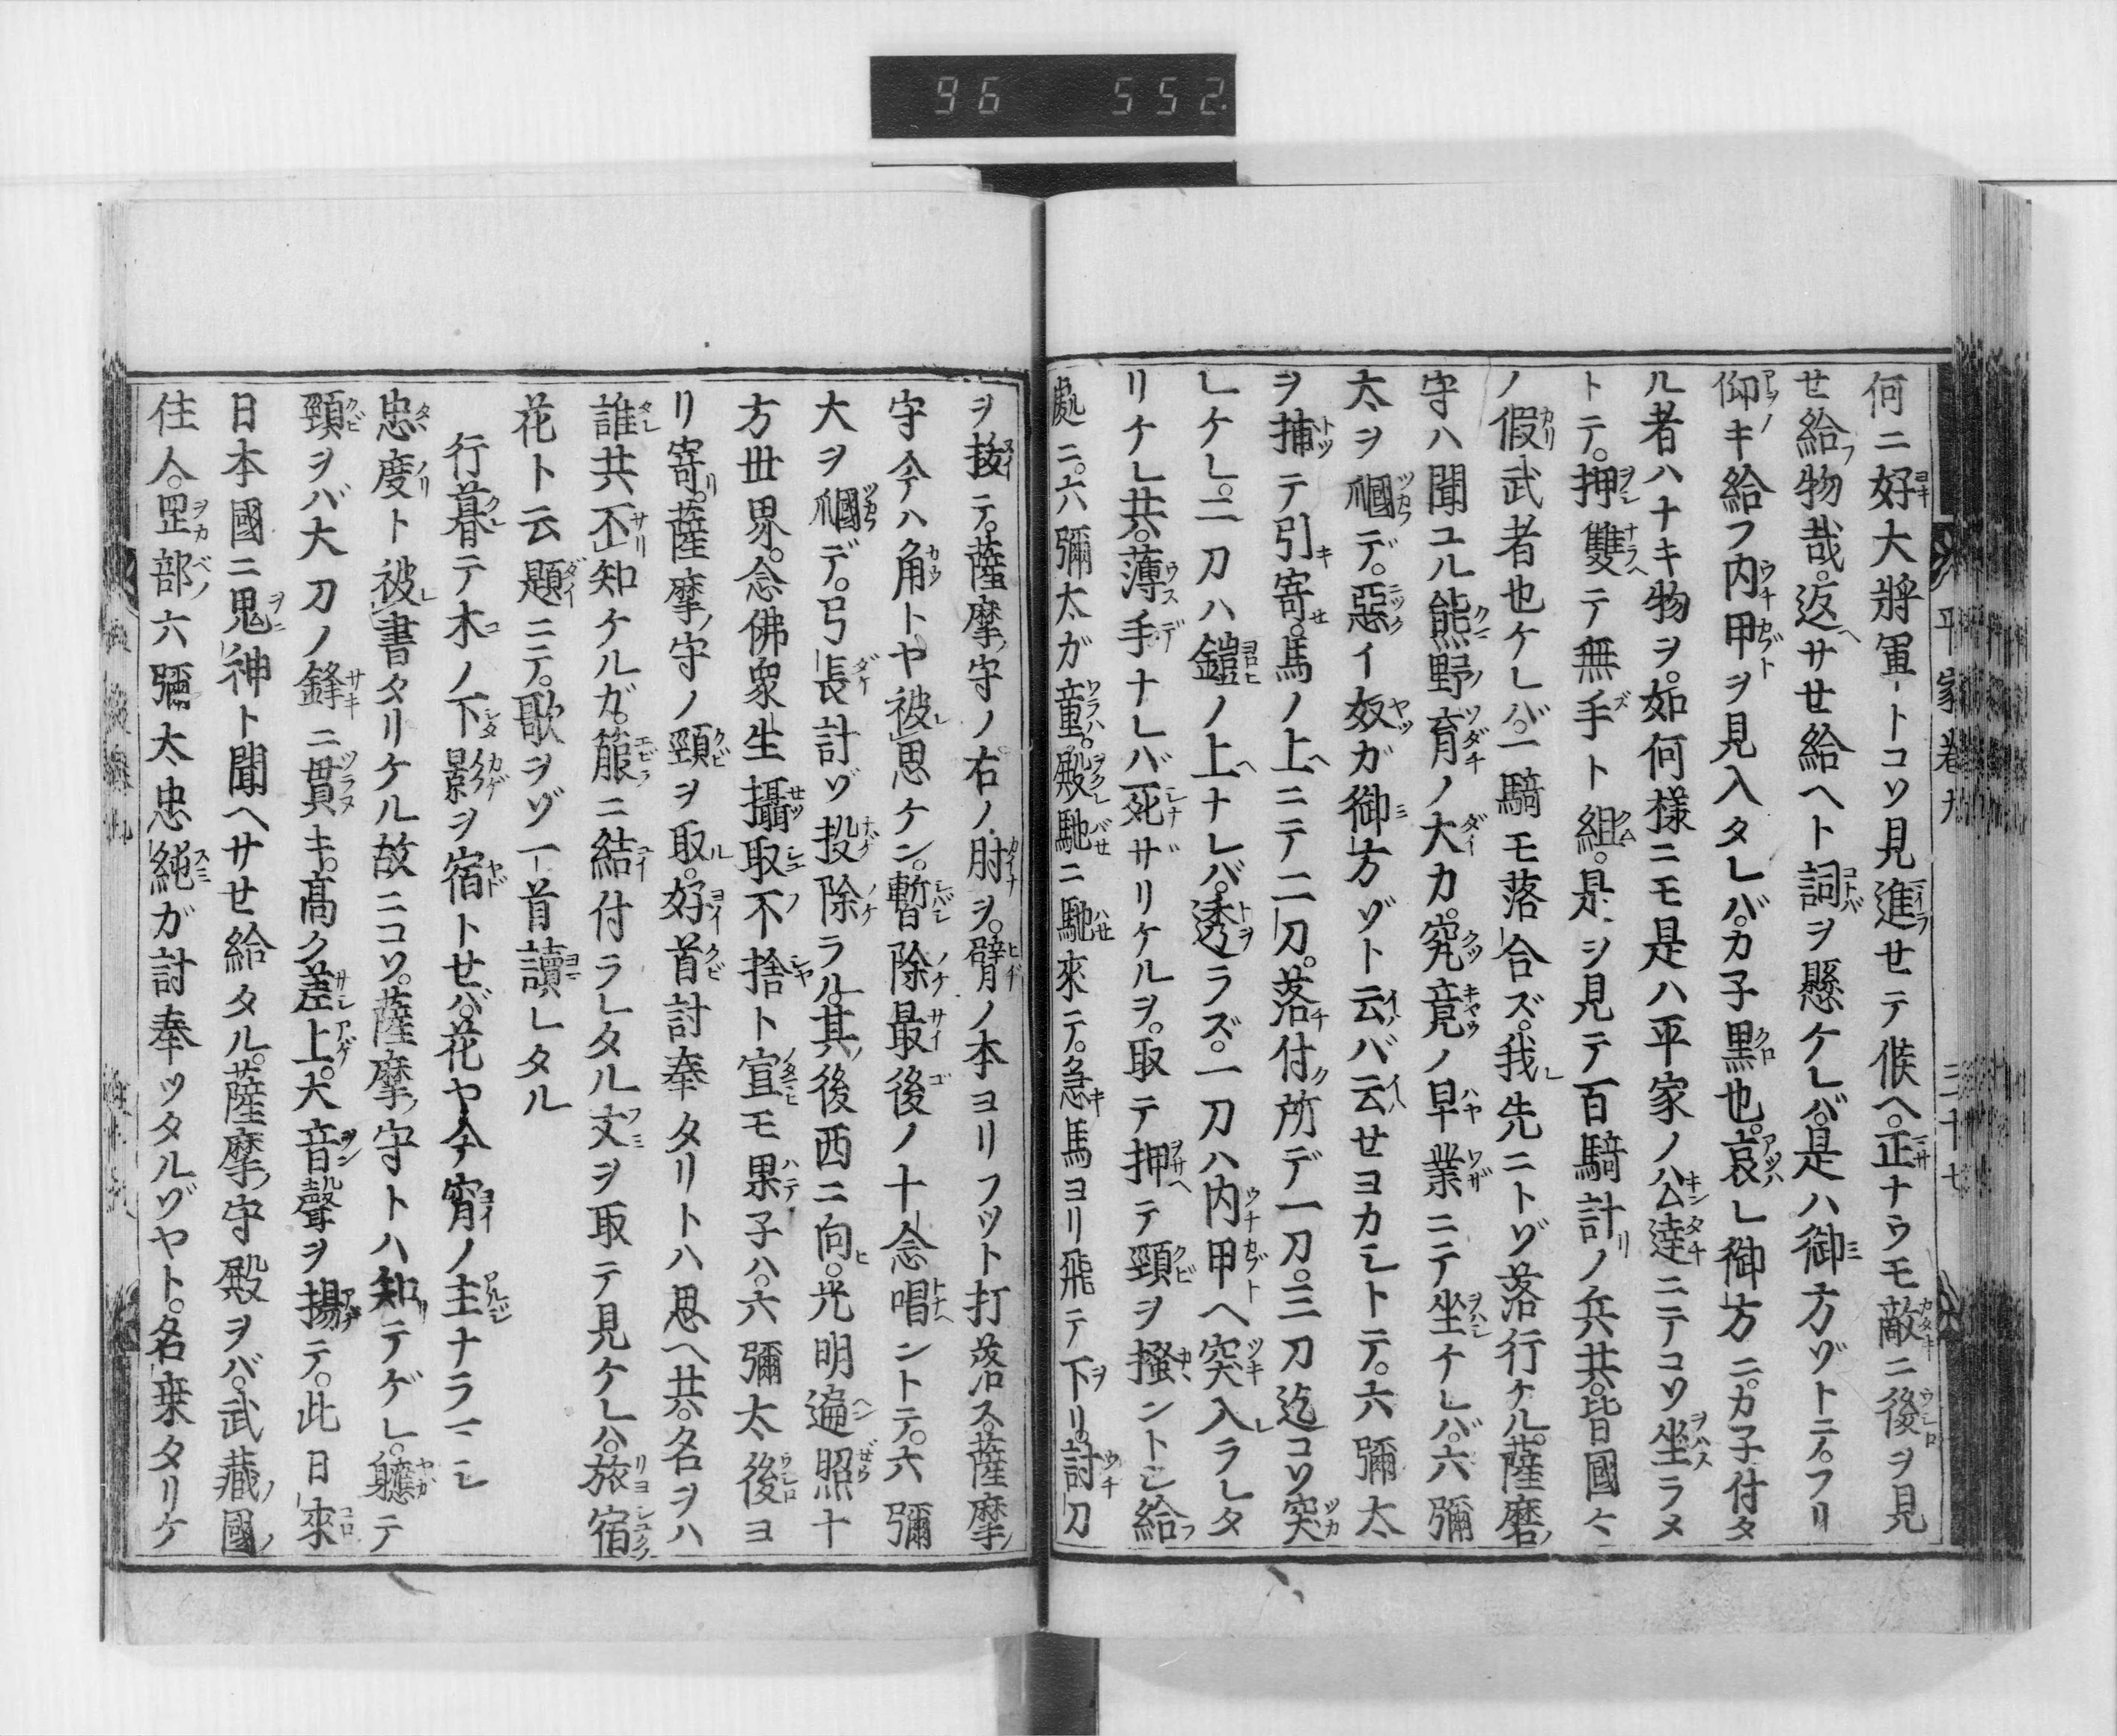 96 552
平家巻九 三十七
何ニ好大將軍トコソ見進セテ候ヘ。正ナウモ敵ニ後ヲ見
セ給物哉。返サセ給ヘト詞ヲ懸ケレバ。是ハ御方ゾトテ。フリ
仰キ給フ内甲ヲ見入タレバ。カ子黒也。哀レ御方ニ。カ子付タ
ル者ハナキ物ヲ。如何樣ニモ是ハ平家ノ公達ニテコソ坐ラメ
トテ。押雙テ無手ト組。是ヲ見テ百騎計ノ兵共。皆國々
ノ假武者也ケレバ。一騎モ落合ズ。我先ニトゾ落行ケル。薩摩
守ハ聞ユル熊野育ノ大力。究竟ノ早業ニテ坐ケレバ。六彌
太ヲ𤔩デ。惡イ奴ガ御方ゾト云ハバ云セヨカシトテ。六彌太
ヲ捕テ引寄。馬ノ上ニテ二刀。落付所デ一刀。三刀迄コソ突
レケレ。二刀ハ鎧ノ上ナレバ。透ラズ。一刀ハ内甲ヘ突入ラレタ
リケレ共。薄手ナレバ死ザリケルヲ。取テ押テ頸ヲ搔ントシ給
處ニ。六彌太ガ童。殿馳ニ馳來テ。急馬ヨリ飛テ下リ。討刀
ヲ拔テ。薩摩守ノ右ノ肘ヲ。臂ノ本ヨリフツト打落ス。薩摩
守今ハ角トヤ被思ケン。暫除最後ノ十念唱ントテ。六彌
太ヲ𤔩デ。弓長計ゾ投除ラル。其後西ニ向。光明遍照十
方世界。念佛衆生攝取不捨ト宣モ果子ハ。六彌太後ヨ
リ寄。薩摩守ノ頸ヲ取。好首討奉タリトハ思ヘ共。名ヲハ
誰共不知ケルガ。箙ニ結付ラレタル文ヲ取テ見ケレハ。旅宿
花ト云題ニテ。歌ヲゾ一首讀レタル
行暮テ木ノ下影ヲ宿トセバ。花ヤ今宵ノ主ナラマシ
忠度ト被書タリケル故ニコソ。薩摩守トハ知テゲレ。軈テ
頸ヲバ大刀ノ鋒ニ貫キ。高ク差上。大音聲ヲ揚テ。此日來
日本國ニ鬼神ト聞ヘサセ給タル。薩摩守殿ヲバ。武藏國
住人。岡部六彌太忠純ガ討奉ツタルゾヤト。名乗タリケ